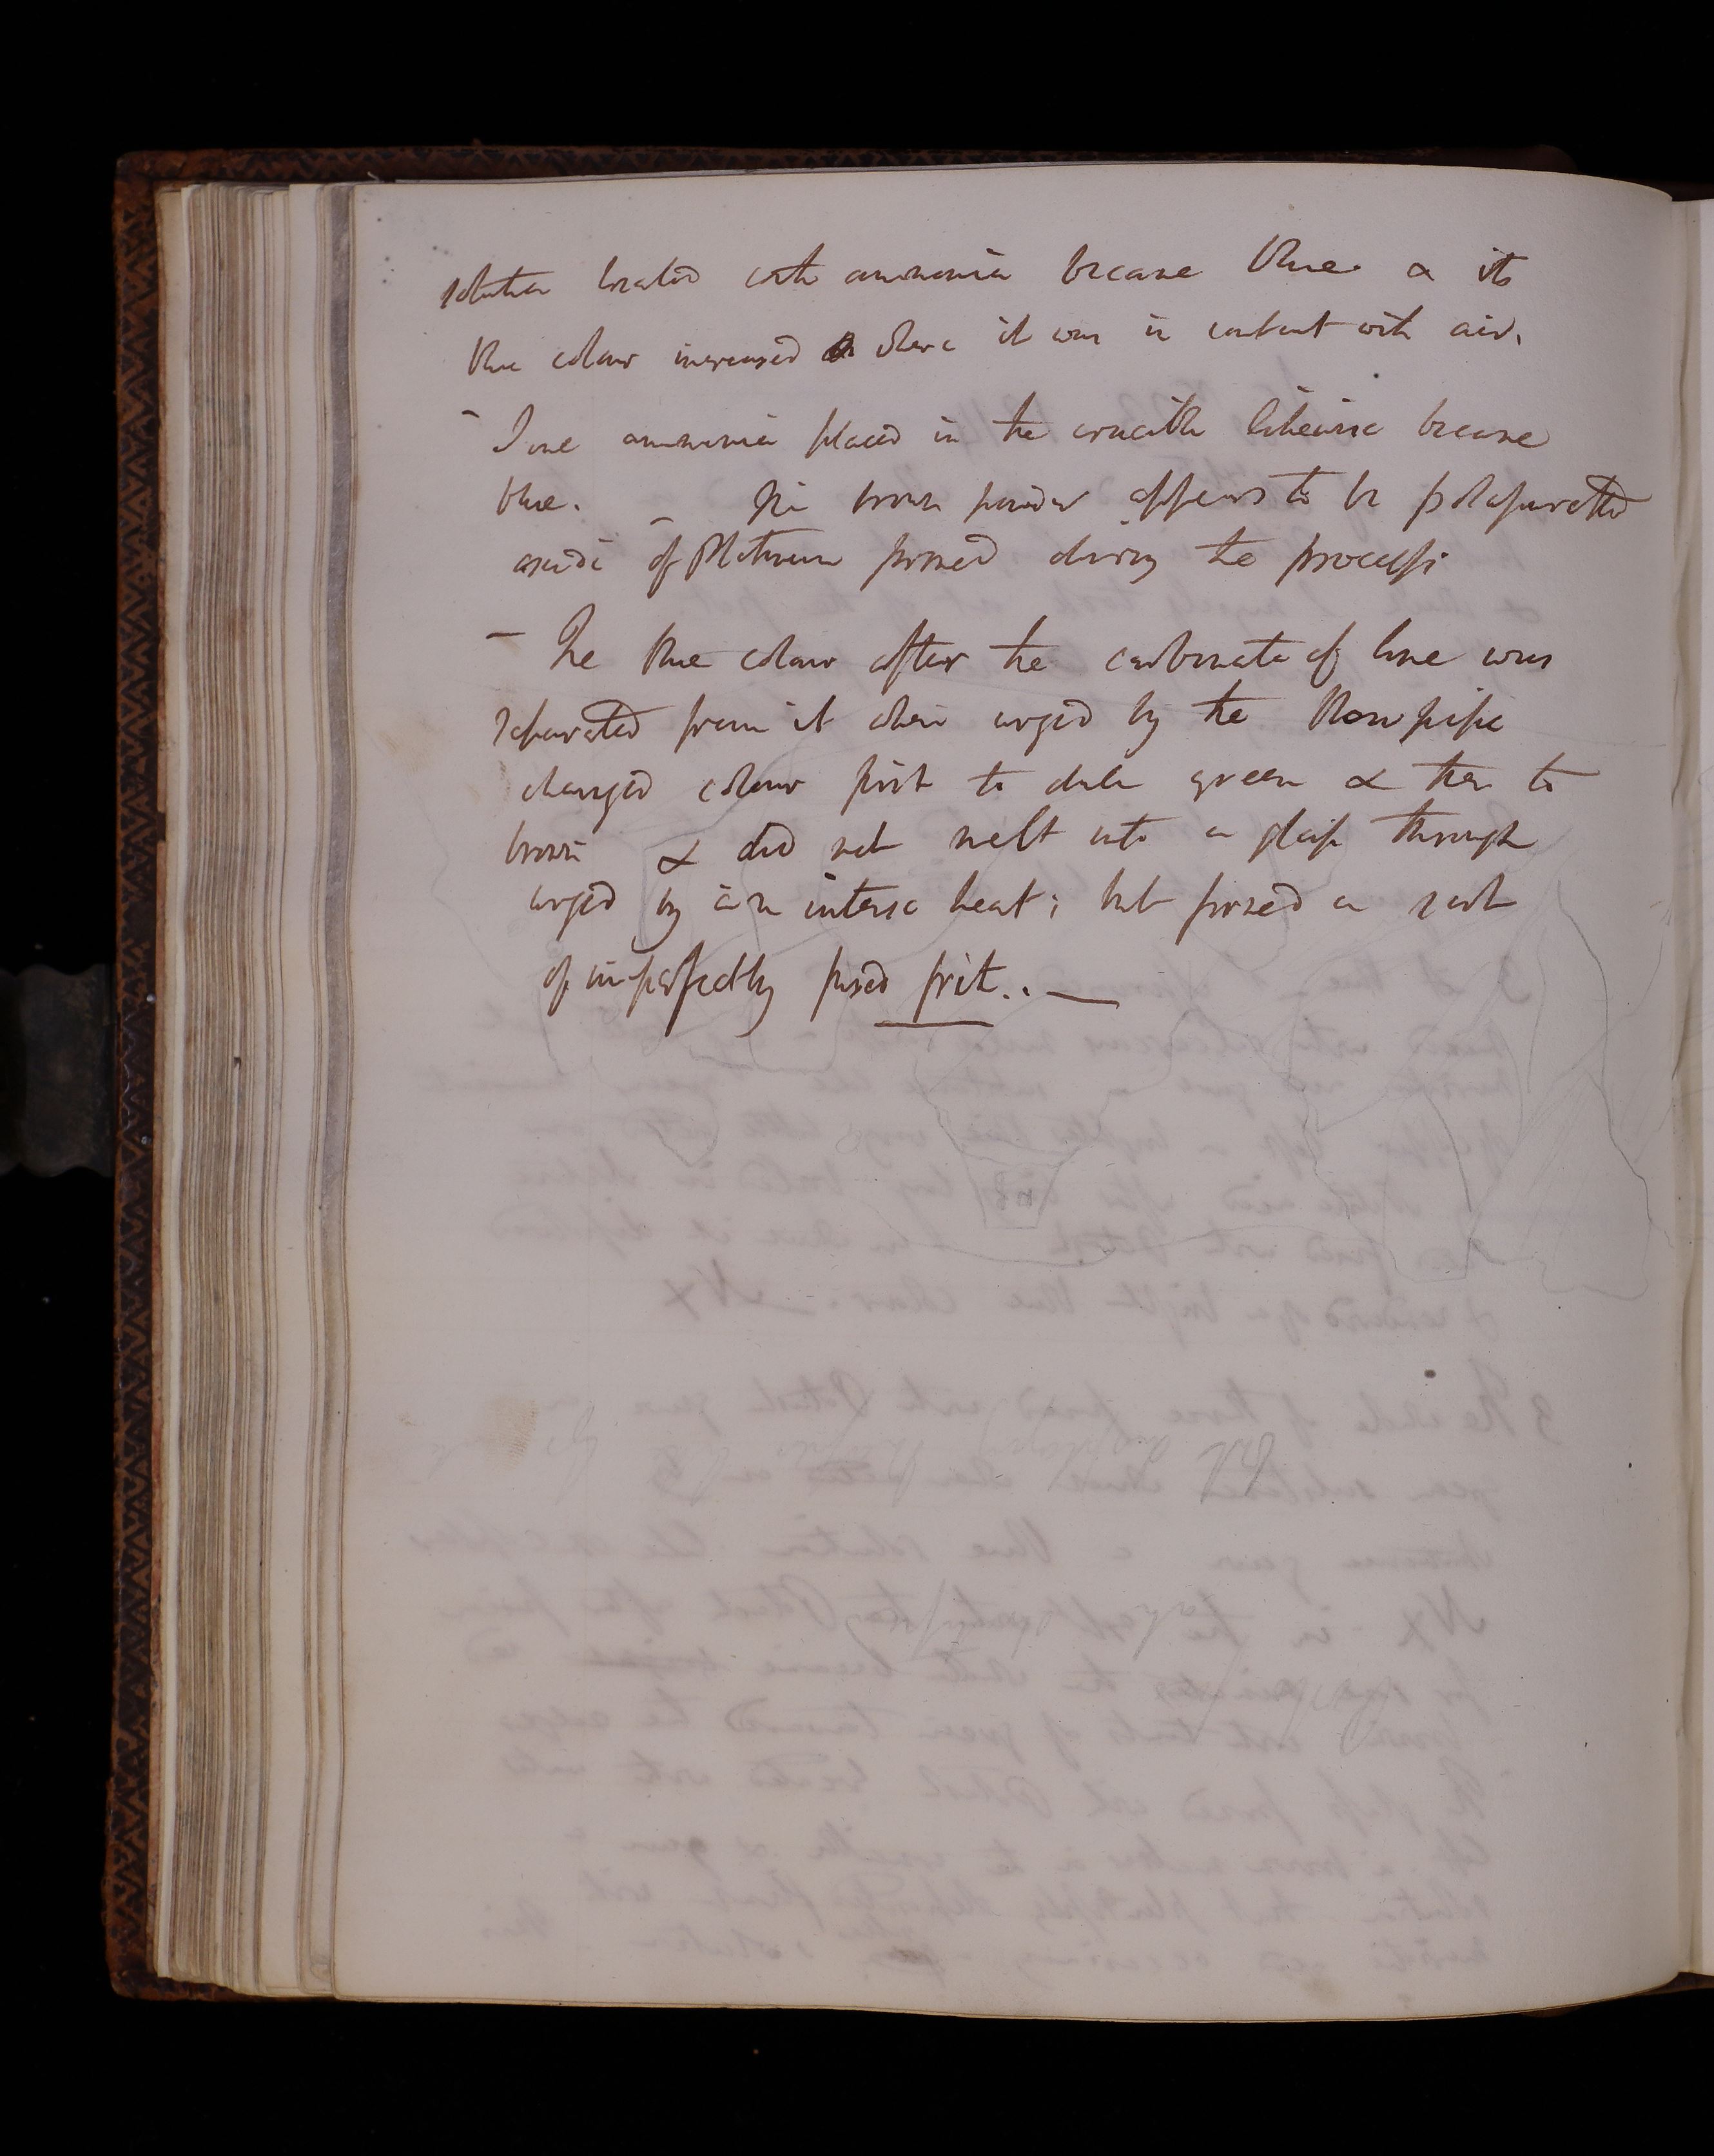 solution treated with ammonia became blue & its
blue colour increased where it was in contact with air.
- Some ammonia placed in the crucible likewise became
blue. _ The brown powder appears to be
oxide of Platinum formed during the process
- The blue colour after the carbonate of lime was
separated from it when urged by the blowpipe
changed colour first to dull green & then to
brown & did not melt into a glass through
urged by an intense heat; but formed a sort
of imperfectly fused frit. . —